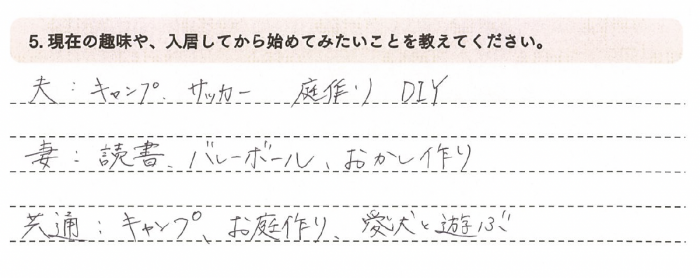 5. 現在の趣味や、入居してから始めてみたいことを教えてください。
夫：キャンプ、サッカー 庭作り DIY
妻：読書、バレーボール、おかし作り
共通：キャンプ、お庭作り、愛犬と遊ぶ